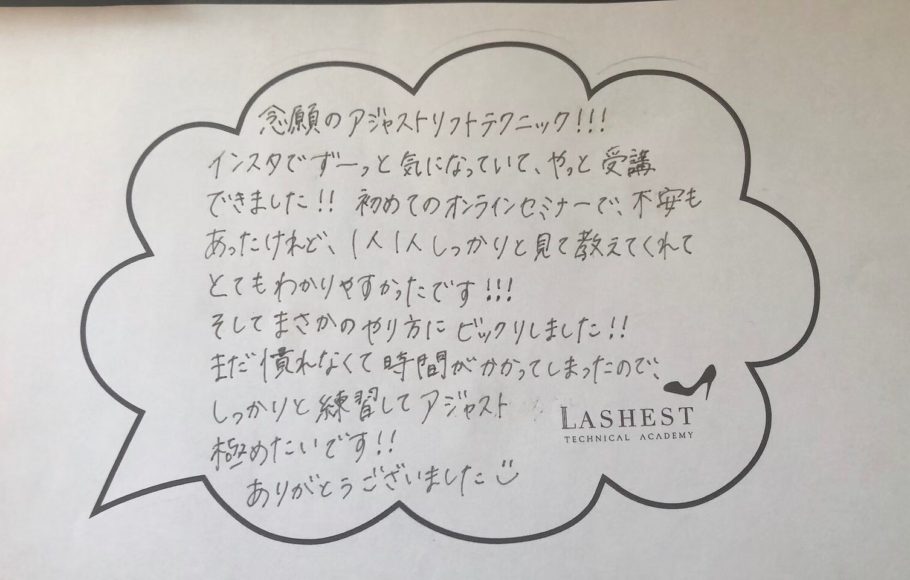 念願のアジャストリフトテクニック!!!
インスタでずーっと気になっていて、やっと受講
できました!! 初めてのオンラインセミナーで、不安も
あったけれど、1人1人しっかりと見て教えてくれて
とてもわかりやすかったです!!!
そしてまさかのやり方にビックリしました!!
まだ慣れなくて時間がかかってしまったので、
しっかりと練習してアジャスト
極めたいです!!
ありがとうございました
LASHEST
TECHNICAL ACADEMY